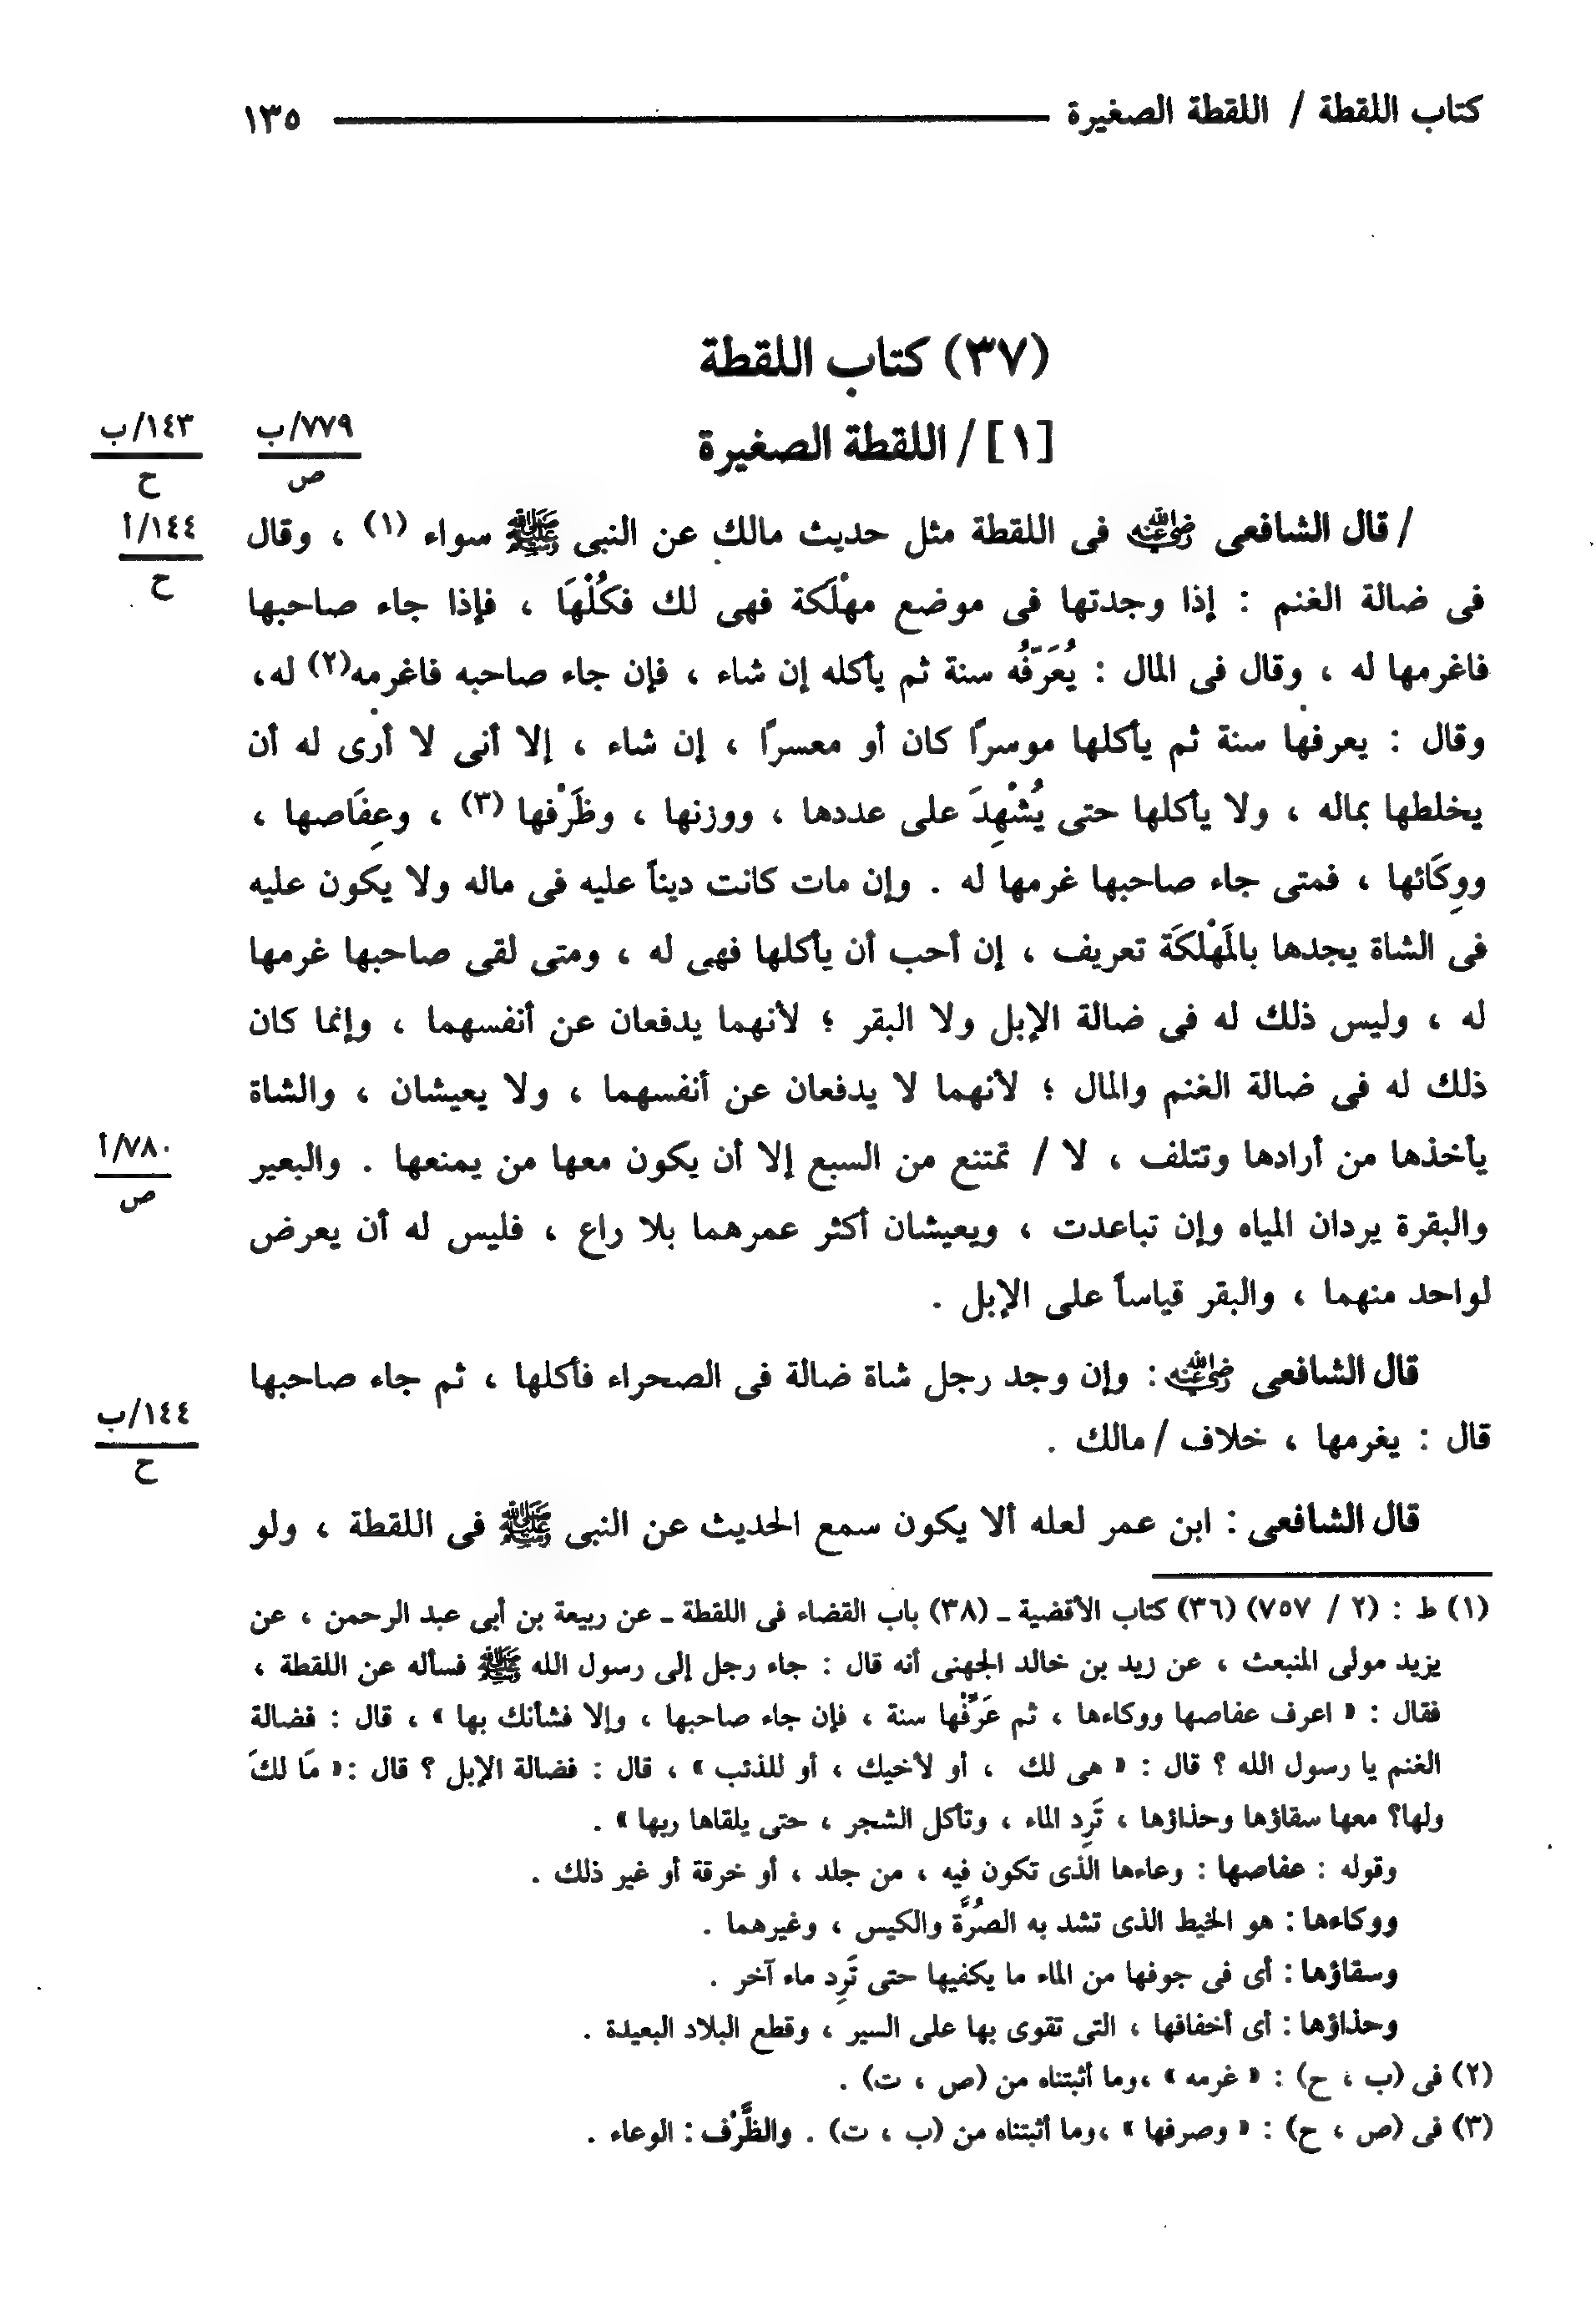 كتاب اللقطة / اللقطة الصغيرة ١٣٥
(٣٧) كتاب اللقطة
[١] / اللقطة الصغيرة
٧٧٩/ب
ص
١٤٣/ب
ح
/ قال الشافعى رضي الله عنه فى اللقطة مثل حديث مالك عن النبى ﷺ سواء (١) ، وقال
١٤٤/أ
ح
فى ضالة الغنم : إذا وجدتها فى موضع مهْلَكة فهى لك فكُلْهَا ، فإذا جاء صاحبها
فاغرمها له ، وقال فى المال : يُعَرِّفُه سنة ثم يأكله إن شاء ، فإن جاء صاحبه فاغرمه(٢) له،
وقال : يعرفها سنة ثم يأكلها موسرًا كان أو معسرًا ، إن شاء ، إلا أنى لا أرى له أن
يخلطها بماله ، ولا يأكلها حتى يُشْهِدَ على عددها ، ووزنها ، وظَرْفها (٣) ، وعِفَاصها ،
ووِكَائها ، فمتى جاء صاحبها غرمها له . وإن مات كانت ديناً عليه فى ماله ولا يكون عليه
فى الشاة يجدها بالمَهْلكَة تعريف ، إن أحب أن يأكلها فهى له ، ومتى لقى صاحبها غرمها
له ، وليس ذلك له فى ضالة الإبل ولا البقر ؛ لأنهما يدفعان عن أنفسهما ، وإنما كان
ذلك له فى ضالة الغنم والمال ؛ لأنهما لا يدفعان عن أنفسهما ، ولا يعيشان ، والشاة
يأخذها من أرادها وتتلف ، لا / تمتنع من السبع إلا أن يكون معها من يمنعها . والبعير
٧٨٠/أ
ص
والبقرة يردان المياه وإن تباعدت ، ويعيشان أكثر عمرهما بلا راع ، فليس له أن يعرض
لواحد منهما ، والبقر قياساً على الإبل .
قال الشافعى رضي الله عنه : وإن وجد رجل شاة ضالة فى الصحراء فأكلها ، ثم جاء صاحبها
قال : يغرمها ، خلاف / مالك .
١٤٤/ب
ح
قال الشافعى : ابن عمر لعله ألا يكون سمع الحديث عن النبى ﷺ فى اللقطة ، ولو
(١) ط : (٢ / ٧٥٧) (٣٦) كتاب الأقضية ـ (٣٨) باب القضاء فى اللقطة ـ عن ربيعة بن أبى عبد الرحمن ، عن
يزيد مولى المنبعث ، عن زيد بن خالد الجهنى أنه قال : جاء رجل إلى رسول الله ﷺ فسأله عن اللقطة ،
فقال : « اعرف عفاصها ووكاءها ، ثم عَرِّفْها سنة ، فإن جاء صاحبها ، وإلا فشأنك بها » ، قال : فضالة
الغنم يا رسول الله ؟ قال : « هى لك ، أو لأخيك ، أو للذئب » ، قال : فضالة الإبل ؟ قال :« مَا لكَ
ولها؟ معها سقاؤها وحذاؤها ، تَرِد الماء ، وتأكل الشجر ، حتى يلقاها ربها » .
وقوله : عفاصها : وعاءها الذى تكون فيه ، من جلد ، أو خرقة أو غير ذلك .
ووكاءها : هو الخيط الذى تشد به الصُرَّة والكيس ، وغيرهما .
وسقاؤها : أى فى جوفها من الماء ما يكفيها حتى تَرِد ماء آخر .
وحذاؤها : أى أخفافها ، التى تقوى بها على السير ، وقطع البلاد البعيدة .
(٢) فى (ب ، ح) : « غرمه » ،وما أثبتناه من (ص ، ت) .
(٣) فى (ص ، ح) : « وصرفها » ،وما أثبتناه من (ب ، ت) . والظَّرْف : الوعاء .